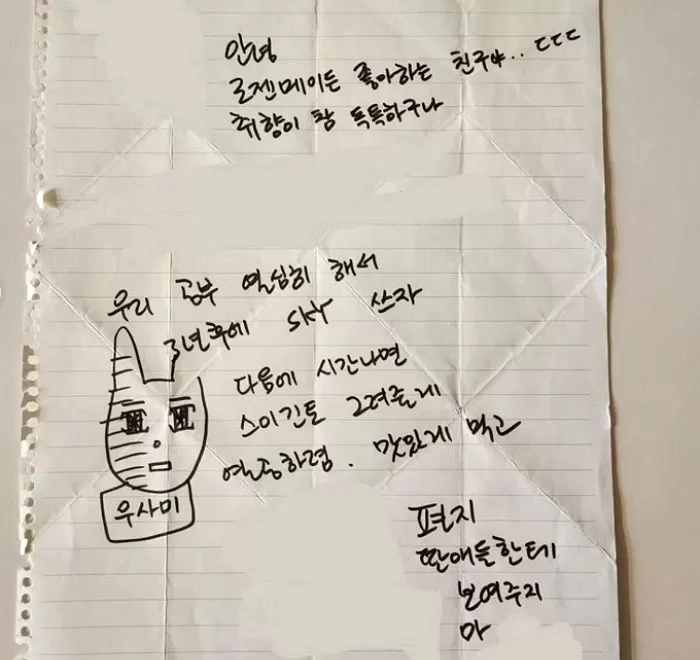 안녕
로젠메이든 좋아하는 친구야.. ㄷㄷㄷ
취향이 참 독특하구나
우리 공부 열심히 해서
3년후에 SKY 쓰자
다음에 시간나면
스이긴토 그려줄게
열공하렴. 맛있게 먹고
우사미
편지
딴애들한테
보여주지
마